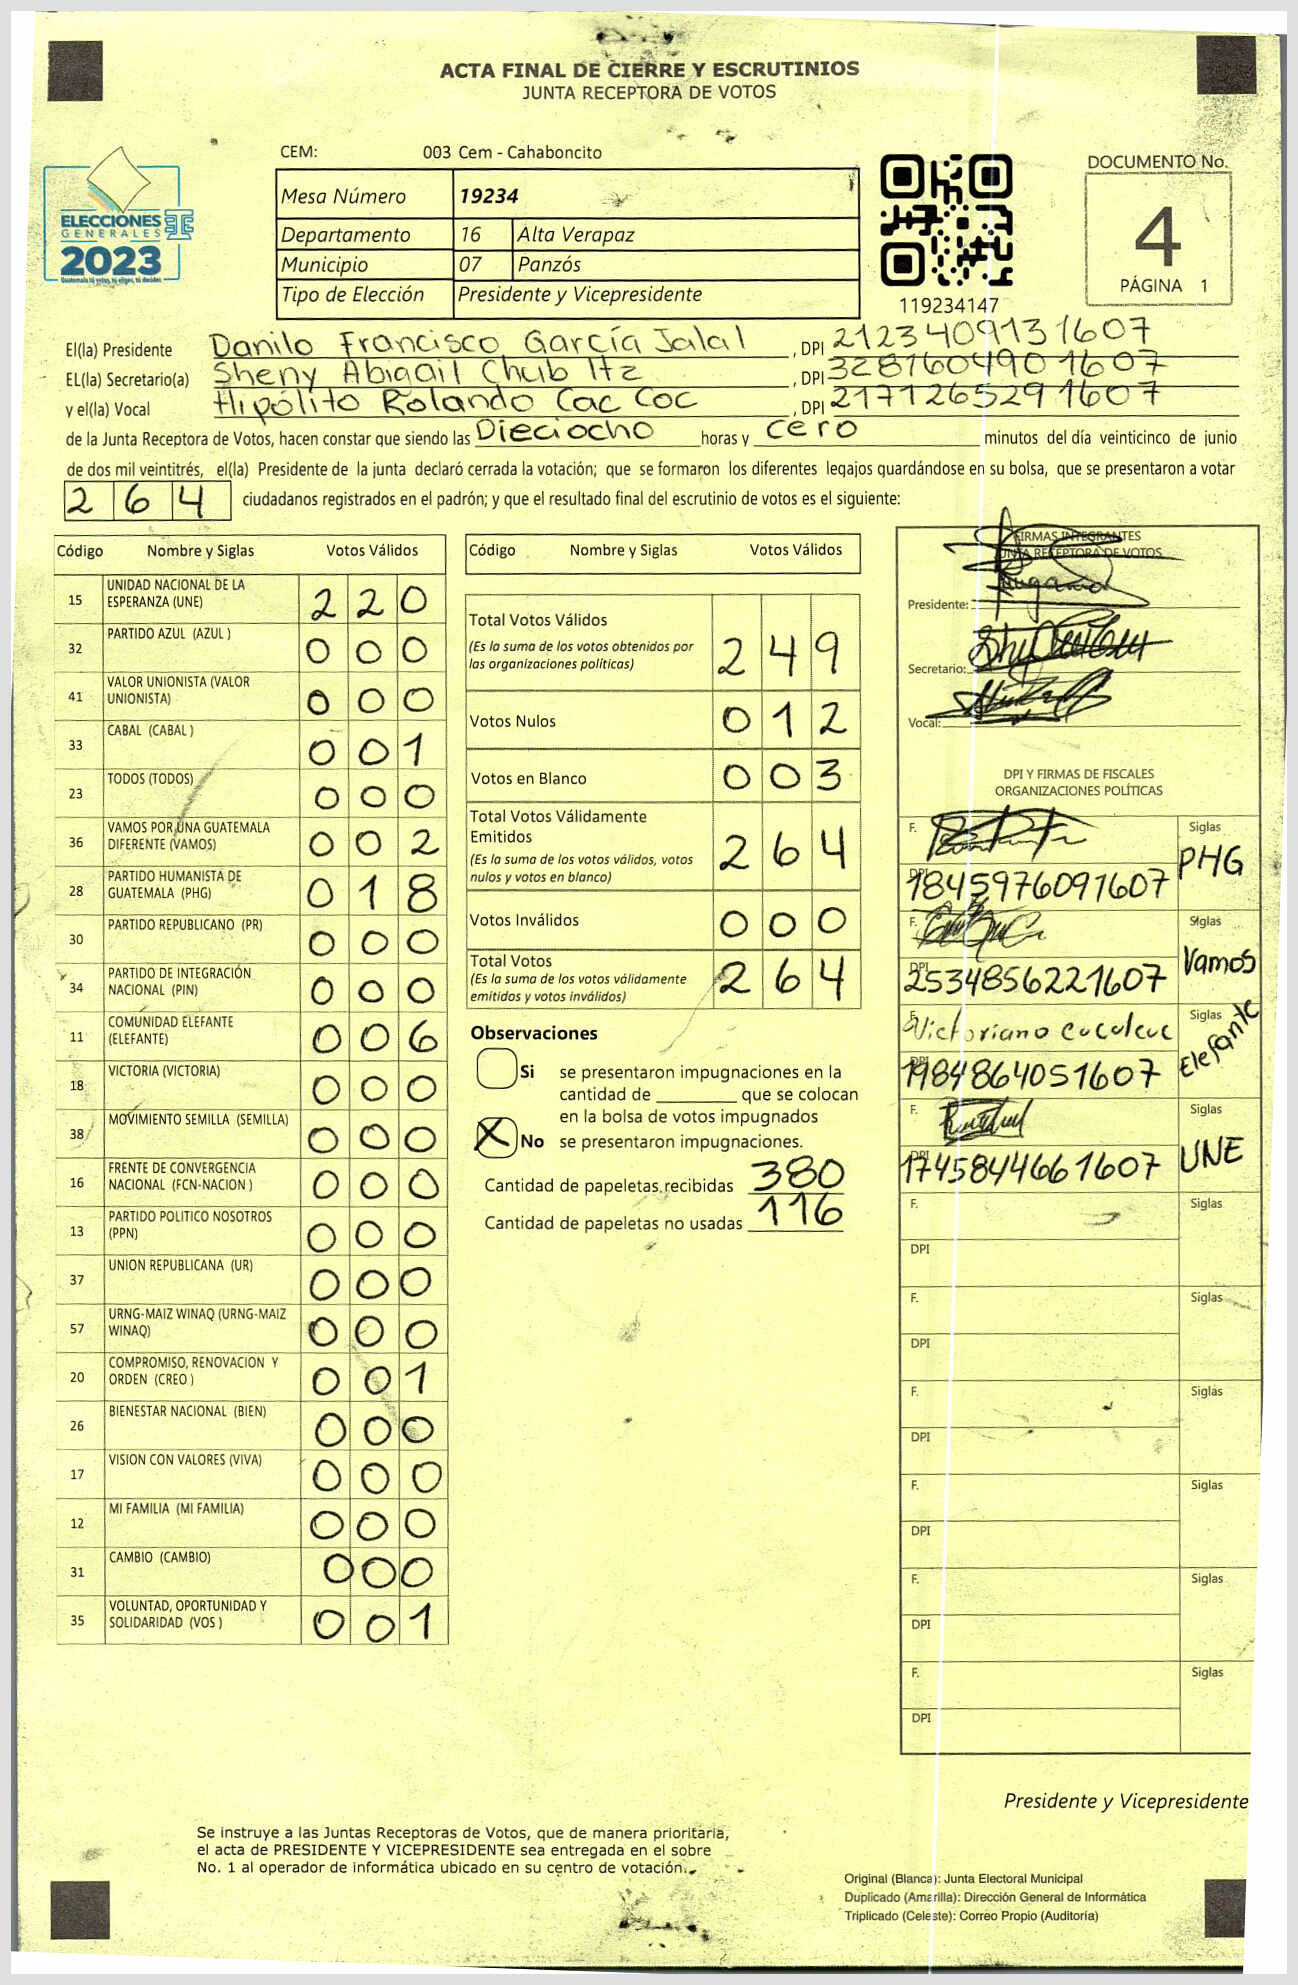 ACTA FINAL DE CIERRE Y ESCRUTINIOS
JUNTA RECEPTORA DE VOTOS
CEM: 003 Cem - Cahaboncito
ELECCIONES
GENERALES
2023
Guatemala tú votas, tú eliges, tú decides
Mesa Número 19234
Departamento 16 Alta Verapaz
Municipio 07 Panzós
Tipo de Elección Presidente y Vicepresidente
119234147
DOCUMENTO No.
4
PÁGINA 1
El(la) Presidente Danilo Francisco García Jalal , DPI 2123409131607
EL(la) Secretario(a) Sheny Abigail Chub Itz , DPI 3281604901607
y el(la) Vocal Hipólito Rolando Cac Coc , DPI 2171265291607
de la Junta Receptora de Votos, hacen constar que siendo las Dieciocho horas y cero minutos del día veinticinco de junio
de dos mil veintitrés, el(la) Presidente de la junta declaró cerrada la votación; que se formaron los diferentes legajos guardándose en su bolsa, que se presentaron a votar
264 ciudadanos registrados en el padrón; y que el resultado final del escrutinio de votos es el siguiente:
Código Nombre y Siglas Votos Válidos
15 UNIDAD NACIONAL DE LA ESPERANZA (UNE) 220
32 PARTIDO AZUL (AZUL ) 000
41 VALOR UNIONISTA (VALOR UNIONISTA) 000
33 CABAL (CABAL ) 001
23 TODOS (TODOS) 000
36 VAMOS POR UNA GUATEMALA DIFERENTE (VAMOS) 002
28 PARTIDO HUMANISTA DE GUATEMALA (PHG) 018
30 PARTIDO REPUBLICANO (PR) 000
34 PARTIDO DE INTEGRACIÓN NACIONAL (PIN) 000
11 COMUNIDAD ELEFANTE (ELEFANTE) 006
18 VICTORIA (VICTORIA) 000
38 MOVIMIENTO SEMILLA (SEMILLA) 000
16 FRENTE DE CONVERGENCIA NACIONAL (FCN-NACION ) 000
13 PARTIDO POLITICO NOSOTROS (PPN) 000
37 UNION REPUBLICANA (UR) 000
57 URNG-MAIZ WINAQ (URNG-MAIZ WINAQ) 000
20 COMPROMISO, RENOVACION Y ORDEN (CREO ) 001
26 BIENESTAR NACIONAL (BIEN) 000
17 VISION CON VALORES (VIVA) 000
12 MI FAMILIA (MI FAMILIA) 000
31 CAMBIO (CAMBIO) 000
35 VOLUNTAD, OPORTUNIDAD Y SOLIDARIDAD (VOS ) 001
Código Nombre y Siglas Votos Válidos
Total Votos Válidos 249
(Es la suma de los votos obtenidos por
las organizaciones políticas)
Votos Nulos 012
Votos en Blanco 003
Total Votos Válidamente
Emitidos 264
(Es la suma de los votos válidos, votos
nulos y votos en blanco)
Votos Inválidos 000
Total Votos 264
(Es la suma de los votos válidamente
emitidos y votos inválidos)
Observaciones
Si se presentaron impugnaciones en la
cantidad de ________ que se colocan
en la bolsa de votos impugnados
X No se presentaron impugnaciones.
Cantidad de papeletas recibidas 380
Cantidad de papeletas no usadas 116
FIRMAS INTEGRANTES
JUNTA RECEPTORA DE VOTOS
Presidente:
Secretario:
Vocal:
DPI Y FIRMAS DE FISCALES
ORGANIZACIONES POLÍTICAS
F. Siglas PHG
DPI 1845976091607
F. Siglas Vamos
DPI 2534856221607
F. Victoriano Siglas Elefante
DPI 1984864051607
F. Siglas UNE
DPI 1745844661607
F. Siglas
DPI
F. Siglas
DPI
F. Siglas
DPI
F. Siglas
DPI
F. Siglas
DPI
F. Siglas
DPI
Presidente y Vicepresidente
Se instruye a las Juntas Receptoras de Votos, que de manera prioritaria,
el acta de PRESIDENTE Y VICEPRESIDENTE sea entregada en el sobre
No. 1 al operador de informática ubicado en su centro de votación.
Original (Blanca): Junta Electoral Municipal
Duplicado (Amarilla): Dirección General de Informática
Triplicado (Celeste): Correo Propio (Auditoría)